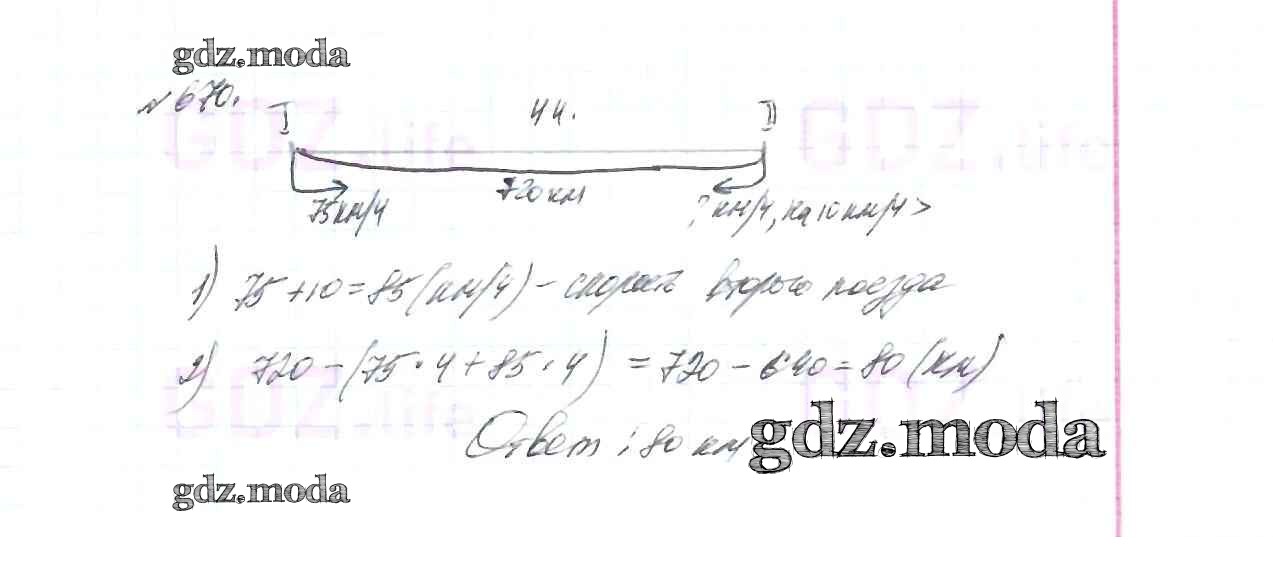 gdz.moda
№ 670.
I 4 ч. II
GDZ.life GDZ.life
720 км
75 км/ч ? км/ч, на 10 км/ч >
1) 75 + 10 = 85 (км/ч) - скорость второго поезда
2) 720 - (75 · 4 + 85 · 4) = 720 - 640 = 80 (км)
GDZ.life GDZ.life
Ответ: 80 км
gdz.moda
gdz.moda